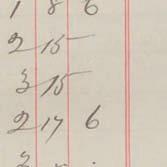 1 8 6
2 15
3 15
2 17 6